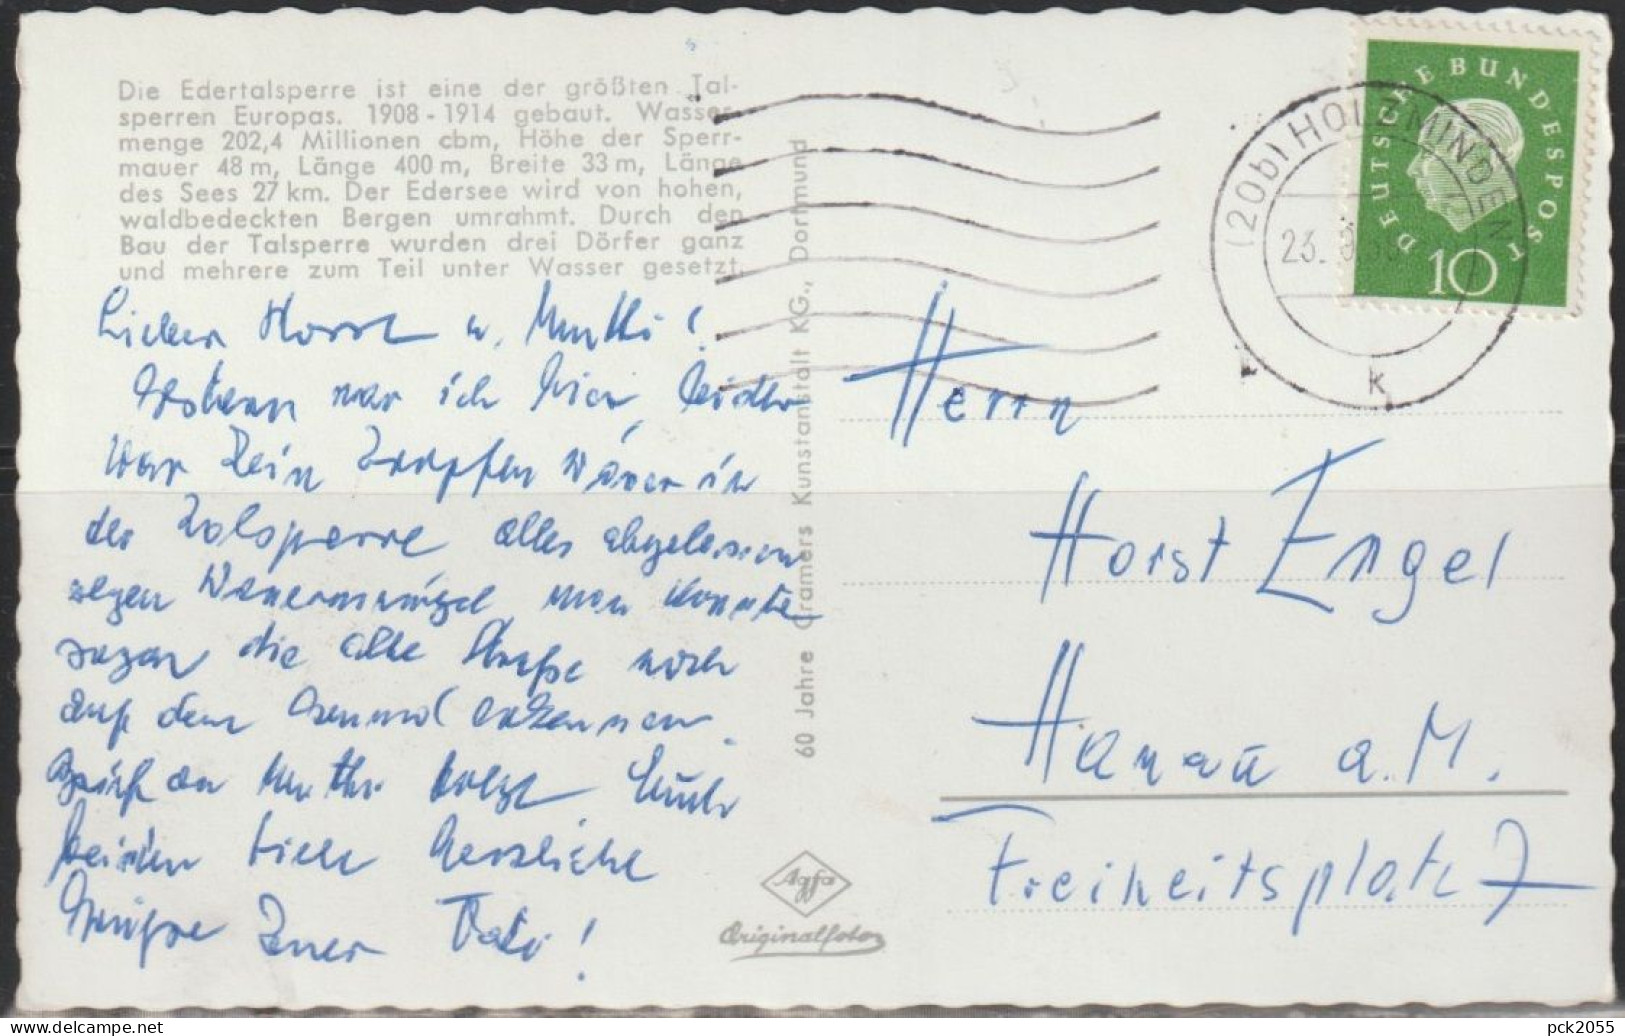 Die Edertalsperre ist eine der größten Tal-
sperren Europas. 1908 - 1914 gebaut. Wasser-
menge 202,4 Millionen cbm, Höhe der Sperr-
mauer 48 m, Länge 400 m, Breite 33 m, Länge
des Sees 27 km. Der Edersee wird von hohen,
waldbedeckten Bergen umrahmt. Durch den
Bau der Talsperre wurden drei Dörfer ganz
und mehrere zum Teil unter Wasser gesetzt.
Lieber Horst u. Mutti!
Gestern war ich hier, leider
war kein Tropfen Wasser in
der Talsperre alles abgelassen
wegen Wassermangel man konnte
sogar die alte Straße noch
auf dem Grund erkennen.
Brief an Mutti folgt Euch
beiden viele herzliche
Grüße Euer Vati!
60 Jahre Cramers Kunstanstalt KG., Dortmund
Agfa
Originalfoto
DEUTSCHE BUNDESPOST
10
(20b) HOLZMINDEN
23.
k
Herrn
Horst Engel
Hanau a. M.
Freiheitsplatz 7
delcampe.net
pck2055